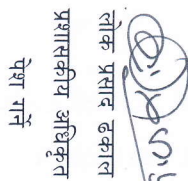 लोक प्रसाद ढकाल
प्रशासकीय अधिकृत
पेश गर्ने